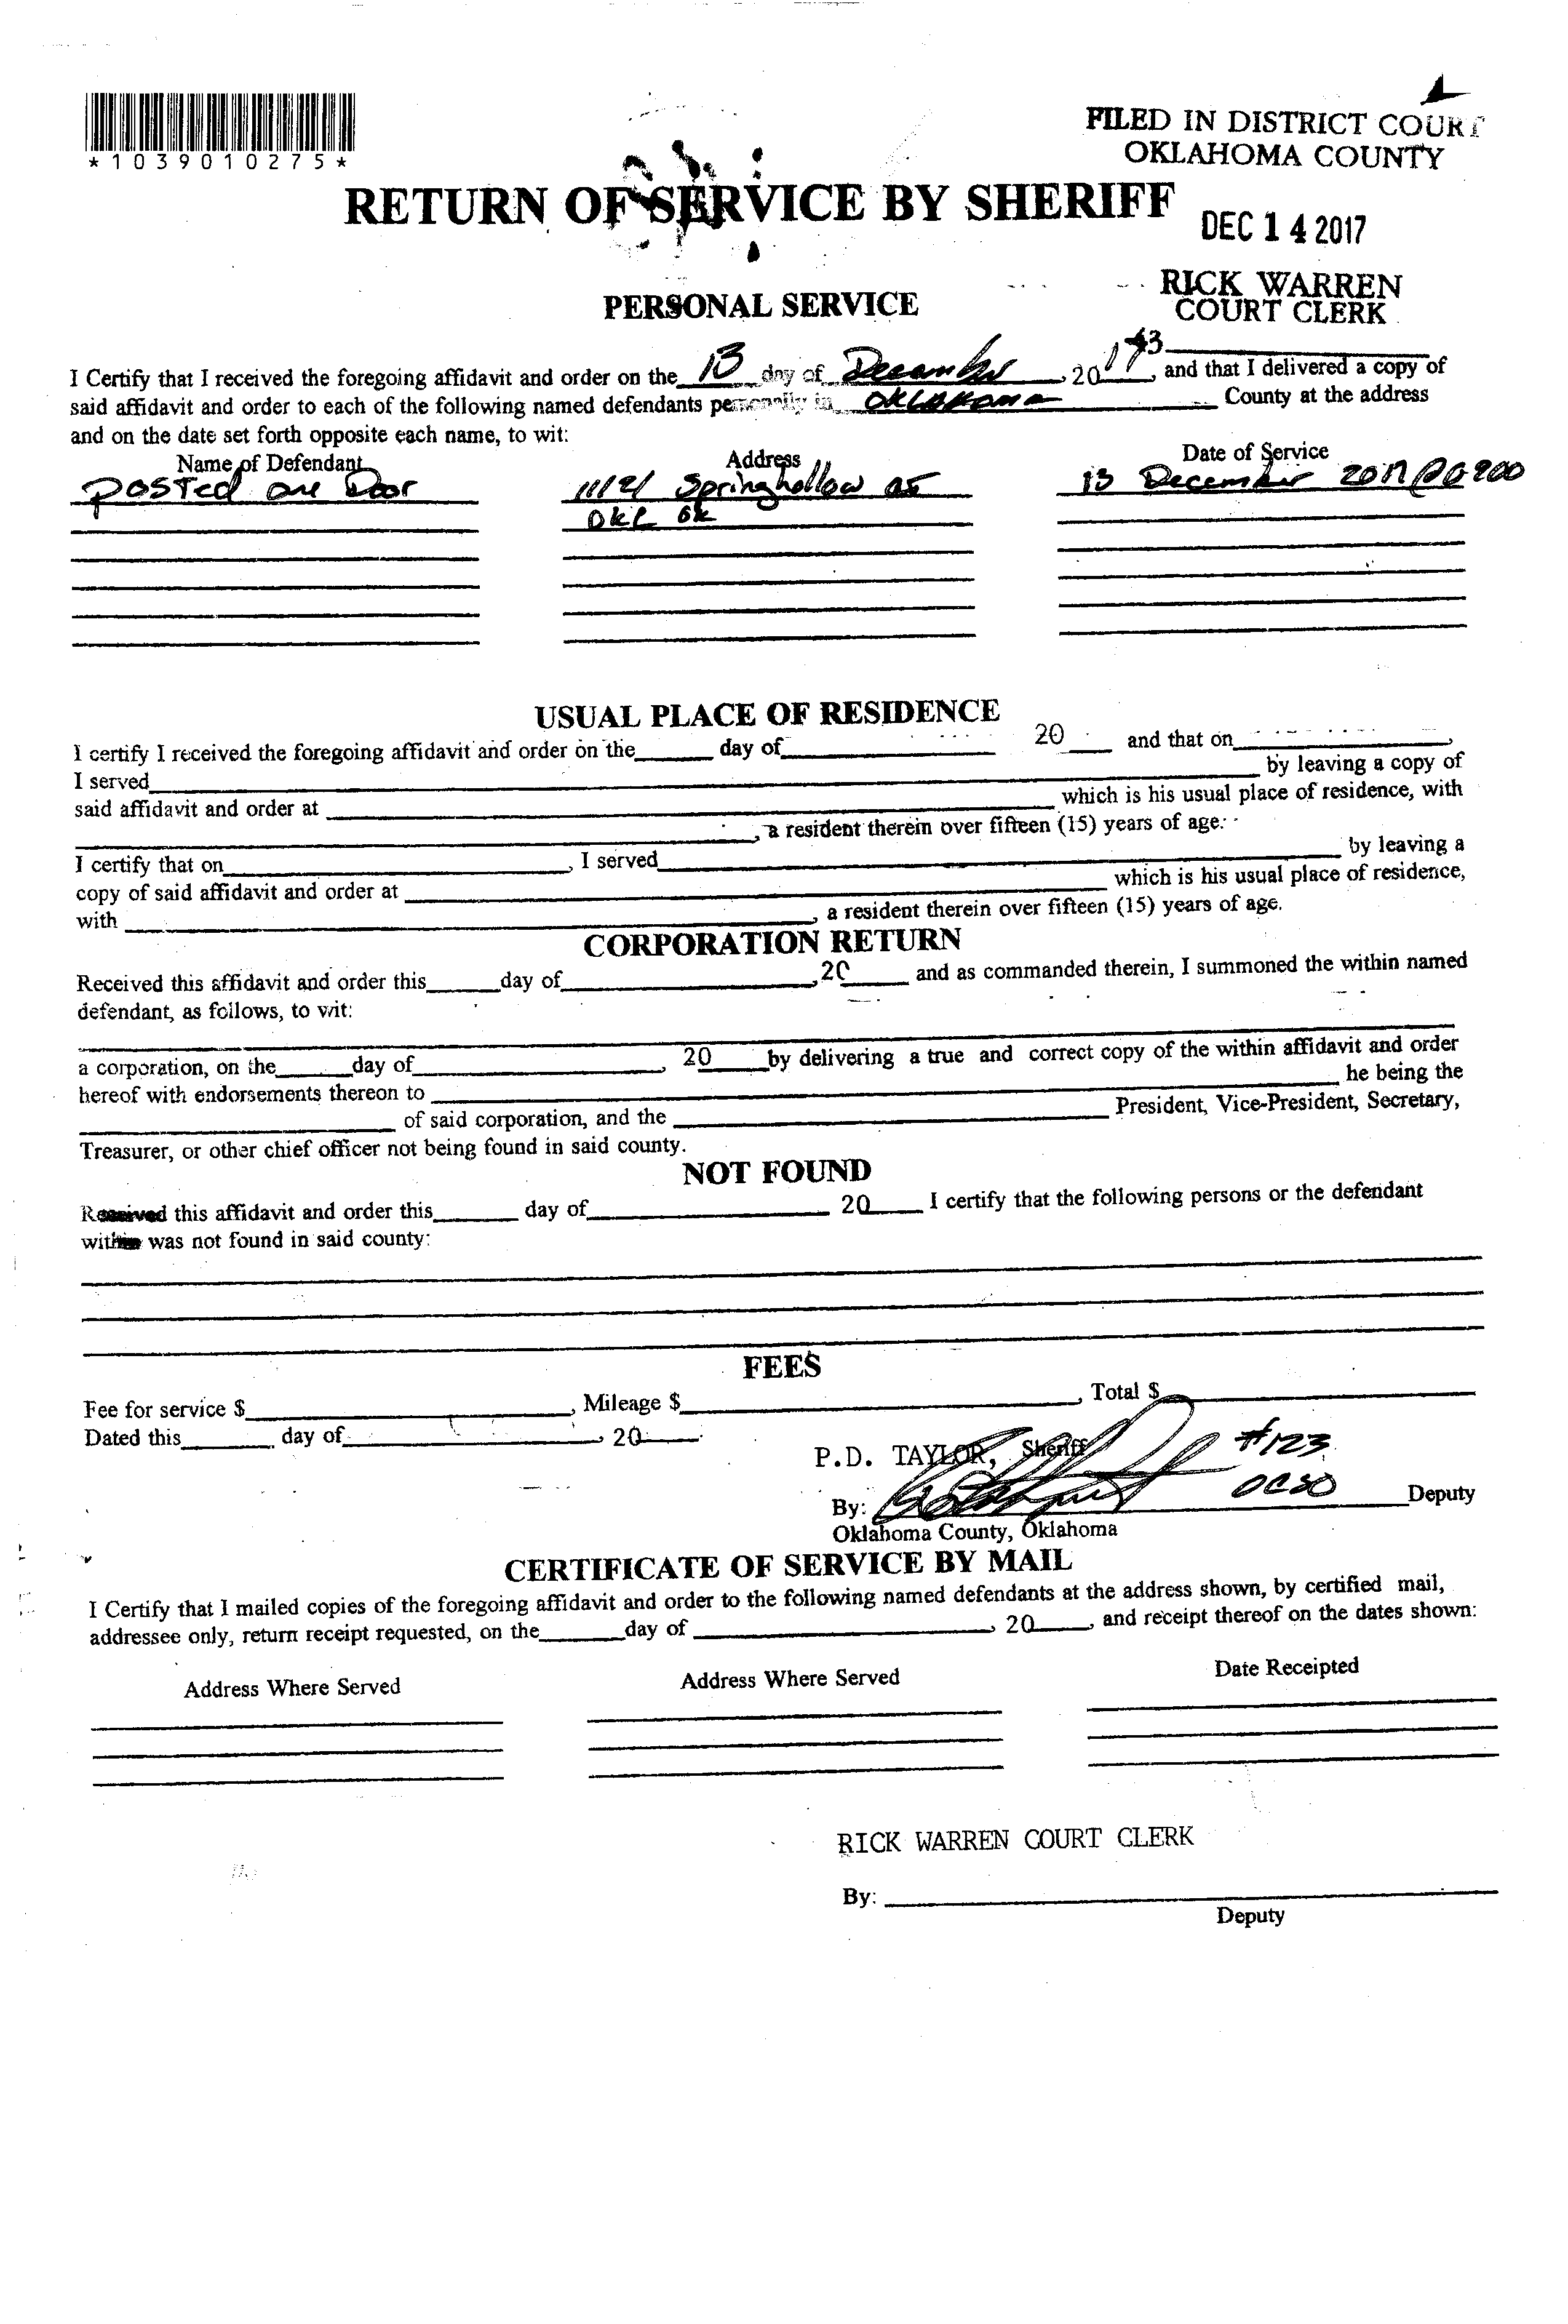 *1039010275*
FILED IN DISTRICT COURT
OKLAHOMA COUNTY
RETURN OF SERVICE BY SHERIFF
DEC 14 2017
PERSONAL SERVICE
RICK WARREN
COURT CLERK
43
I Certify that I received the foregoing affidavit and order on the 13 day of December, 2017, and that I delivered a copy of
said affidavit and order to each of the following named defendants personally in Oklahoma County at the address
and on the date set forth opposite each name, to wit:
Name of Defendant Address Date of Service
Posted one Door 11121 Springhollow 13 December 2017
Ok
USUAL PLACE OF RESIDENCE
I certify I received the foregoing affidavit and order on the ______ day of ______ 20___ and that on ______,
I served ______ by leaving a copy of
said affidavit and order at ______ which is his usual place of residence, with
______, a resident therein over fifteen (15) years of age.
I certify that on ______, I served ______ by leaving a
copy of said affidavit and order at ______ which is his usual place of residence,
with ______, a resident therein over fifteen (15) years of age.
CORPORATION RETURN
Received this affidavit and order this ______ day of ______, 20___ and as commanded therein, I summoned the within named
defendant, as follows, to wit:
a corporation, on the ______ day of ______, 20___ by delivering a true and correct copy of the within affidavit and order
hereof with endorsements thereon to ______ he being the
______ of said corporation, and the ______ President, Vice-President, Secretary,
Treasurer, or other chief officer not being found in said county.
NOT FOUND
Received this affidavit and order this ______ day of ______ 20___ I certify that the following persons or the defendant
within was not found in said county:
FEES
Fee for service $______, Mileage $______, Total $______
Dated this ______ day of ______, 20___.
P.D. TAYLOR, Sheriff #123
By: ______ OCSO Deputy
Oklahoma County, Oklahoma
CERTIFICATE OF SERVICE BY MAIL
I Certify that I mailed copies of the foregoing affidavit and order to the following named defendants at the address shown, by certified mail,
addressee only, return receipt requested, on the ______ day of ______, 20___, and receipt thereof on the dates shown:
Address Where Served Address Where Served Date Receipted
RICK WARREN COURT CLERK
By: ______
Deputy